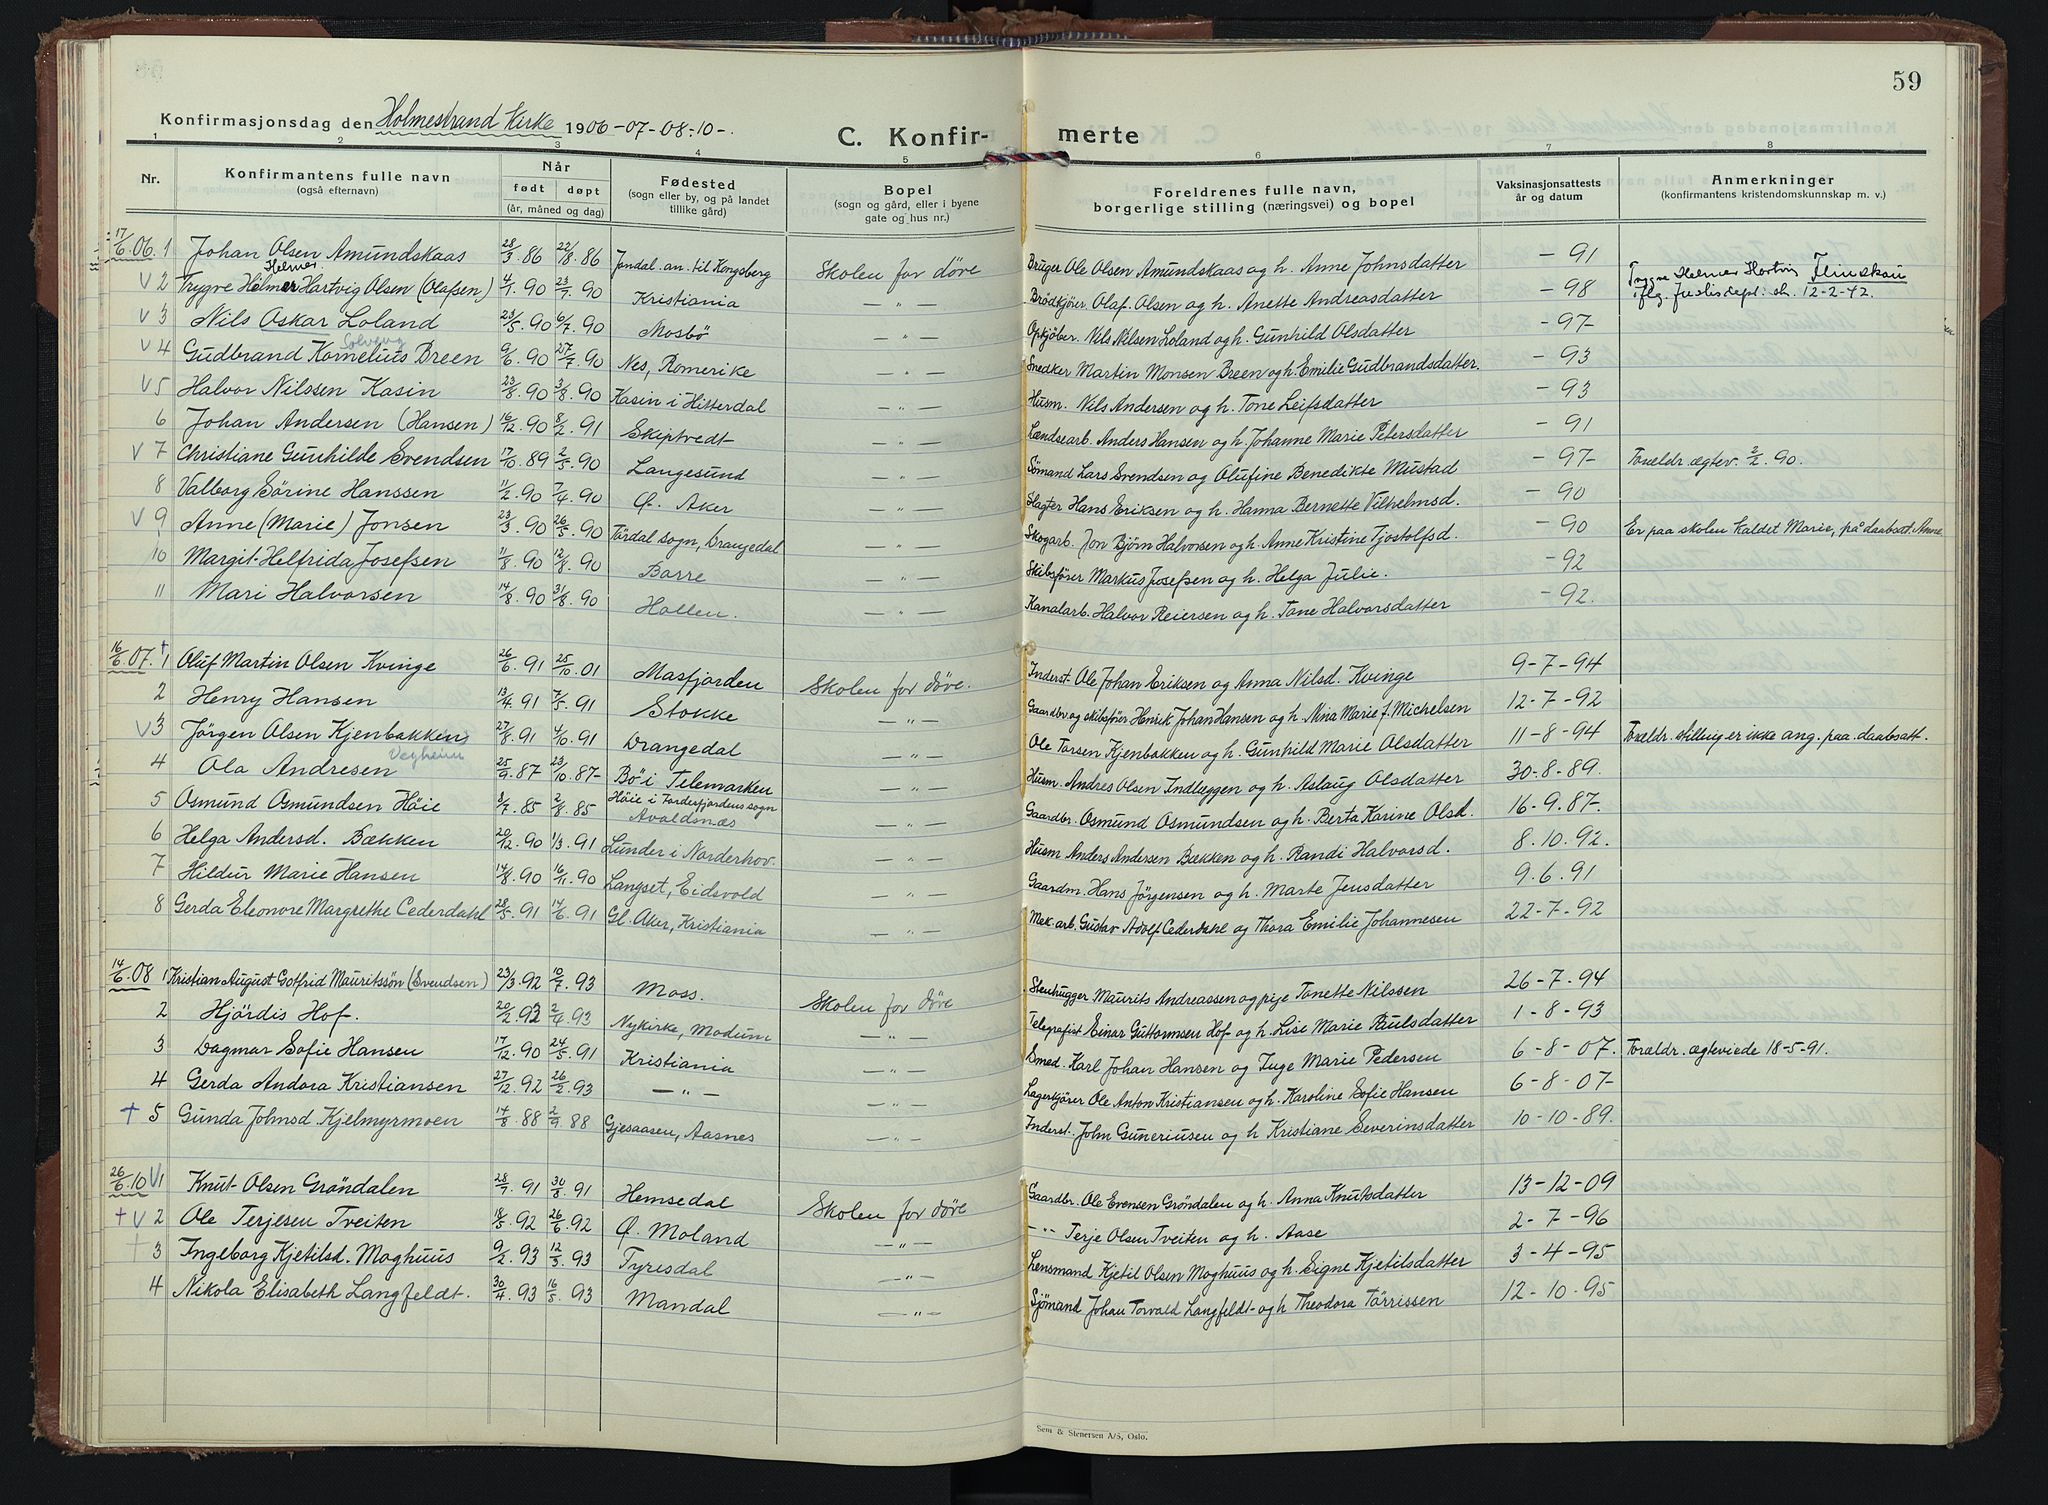 59
Konfirmasjonsdag den Holmestrand Kirke 1906-07-08-10-.
C. Konfirmerte
1 2 3 4 5 6 7 8
Nr. Konfirmantens fulle navn (også efternavn) Når født døpt (år, måned og dag) Fødested (sogn eller by, og på landet tillike gård) Bopel (sogn og gård, eller i byene gate og hus nr.) Foreldrenes fulle navn, borgerlige stilling (næringsvei) og bopel Vaksinasjonsattests år og datum Anmerkninger (konfirmantens kristendomskunnskap m. v.)
17/6.06. 1 Johan Olsen Amundskaas 28/3.86 22/8.86 Jondal. an. til Kongsberg Skolen for døve Bruger Ole Olsen Amundskaas og h. Anne Johnsdatter - 91
V 2 Trygve Helmer Hartvig Olsen (Olafsen) 4/7.90 23/7.90 Kristiania - " - Brödkjörer. Olaf. Olsen og h. Anette Andreasdatter - 98 Trygve Helmer Hartvig Flinskau iflg. Justisdept. sk. 12-2-42.
V 3 Nils Oskar Loland 23/5.90 6/7.90 Mosbö - " - Opkjöber. Nils Nilsen Loland og h. Gunhild Olsdatter - 97-
Solveug
V 4 Gudbrand Kornelius Breen 9/6.90 27/7.90 Nes, Romerike - " - Snedker Martin Monsen Breen og h. Emilie Gudbrandsdatter. - 93
V 5 Halvor Nilssen Kasin 23/8.90 3/8.90 Kasin i Hitterdal - " - Husm. Nils Andersen og h. Tone Leifsdatter - 93
6 Johan Andersen (Hansen) 16/12.90 8/2.91 Skiptvedt - " - Lændsearb. Anders Hansen og h. Johanne Marie Petersdatter - 91
V 7 Christiane Gunhilde Svendsen 17/10.89 2/5.90 Langesund - " - Sömand Lars Svendsen og Olufine Benedikte Mustad - 97- Foreldr. ægtev. 2/2. 90.
8 Valborg Sörine Hanssen 11/2.90 7/4.90 Ø. Aker - " - Slagter Hans Eriksen og h. Hanna Bernette Vilhelmsd. - 90
V 9 Anne (Marie) Jonsen 23/3.90 26/5.90 Tördal sogn, Drangedal - " - Skogarb. Jon Bjørn Halvorsen og h. Anne Kristine Tjostolfsd. - 90 Er paa skolen kaldet Marie, på daabsat. Anne
10 Margit Helfrida Josefsen 11/8.90 12/8.90 Borre - " - Skibsfører Markus Josefsen og h. Helga Julie. - 92
11 Mari Halvorsen 14/8.90 31/8.90 Hollen. - " - Kanalarb. Halvor Reiersen og h. Tone Halvorsdatter - 92.
16/6.07. † 1 Oluf Martin Olsen Kvinge 26/6.91 25/10.01 Masfjorden Skolen for døve. Inderst. Ole Johan Eriksen og Anna Nilsd. Kvinge 9-7-94
2 Henry Hansen 13/4.91 7/5.91 Stokke - " - Gaardbr. og skibsfører Henrik Johan Hansen og h. Nina Marie f. Michelsen 12-7-92
V 3 Jörgen Olsen Kjenbakken 27/8.91 4/10.91 Drangedal - " - Ole Torsen Kjenbakken og h. Gunhild Marie Olsdatter 11-8-94 Foreldr. stilling er ikke ang. paa. daabsatt.
4 Ola Andresen Vegheim 25/9.87 23/10.87- Bö i Telemarken - " - Husm. Andres Olsen Indlæggen og h. Aslaug Olsdatter 30-8-89.
5 Osmund Osmundsen Höie 3/7.85 2/8.85 Höie i Tordesfjordens sogn Avaldsnæs - " - Gaardbr. Osmund Osmundsen og h. Berta Karine Olsd. 16-9.87-
6 Helga Andersd. Bækken 20/12.90 1/3.91 Lunder i Norderhov. - " - Husm Anders Andersen Bækken og h. Randi Halvorsd. 8.10.92.
7 Hildur Marie Hansen 14/8.90 16/11.90 Langset, Eidsvold - " - Gaardm. Hans Jörgensen og h. Marte Jensdatter 9.6.91
8 Gerda Eleonore Margrethe Cederdahl 28/5.91 14/6.91 Gl. Aker, Kristiania - " - Mek. arb. Gustav Adolf Cederdahl og Thora Emilie Johannesen 22-7-92
14/6.08 1 Kristian August Gotfrid Mauritssön (Svendsen) 23/3.92 10/7.93 Moss. Skolen for døve Stenhugger Maurits Andreassen og pige Tonette Nilssen 26-7.94
2 Hjördis Hof. 20/2.93 2/4.93 Nykirke, Modum - " - Telegrafist Einar Guttormsen Hof og h. Lise Marie Paulsdatter 1-8-93
3 Dagmar Sofie Hansen 17/12.90 24/5.91 Kristiania - " - Smed. Karl Johan Hansen og Inge Marie Pedersen 6-8-07. Foreldr. ægteviede 18-5-91.
4 Gerda Andora Kristiansen 27/12.92 26/2.93 - " - - " - Lagerkjörer Ole Anton Kristiansen og h. Karoline Sofie Hansen 6-8-07-
† 5 Gunda Johnsd Kjelmyrmoen 14/8.88 2/9.88 Gjesaasen, Aasnes - " - Inderst. John Guneriusen og h Kristiane Severinsdatter 10-10-89.
26/6.10 V 1 Knut Olsen Gröndalen 28/7.91 30/8.91 Hemsedal Skolen for døve Gaardbr. Ole Evensen Gröndalen og h. Anna Knutsdatter 13-12-09
† V 2 Ole Terjesen Tveiten 18/5.92 26/6.92 Ø. Moland - " - - " - Terje Olsen Tveiten og h. Aase 2-7-96
† 3 Ingeborg Kjetilsd. Moghuus 9/2.93 12/3.93 Tyrisdal - " - Lensmand Kjetil Olsen Moghuus og h. Signe Kjetilsdatter 3-4-95
4 Nikola Elisabeth Langfeldt. 30/4.93 16/5.93 Mandal - " - Sjömand Johan Torvald Langfeldt og h Theodora Tärrissen 12-10-95
Sem & Stenersen A/S, Oslo.